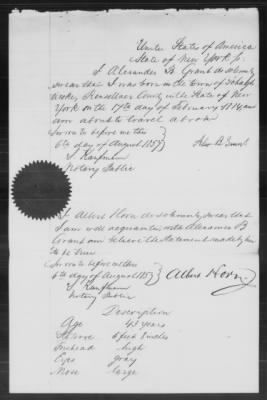 United States of America
State of New York
I Alexander B. Grant do solemnly
swear that I was born in the town of
Rensselaer County in the State of New
York on the 17th day of February 1814, am
now about to travel abroad
Sworn to before me this
6th day of August 1857
Alex B. Grant
S. Kaufmann
Notary Public
I Albert Horn do solemnly swear that
I am well acquainted with Alexander B
Grant and believe the Statement made by him
to be true
Sworn to before me this
6th day of August 1857
Albert Horn
S. Kaufmann
Notary Public
Description
Age 43 years
Stature 6 feet 2 inches
Forehead high
Eyes gray
Nose large